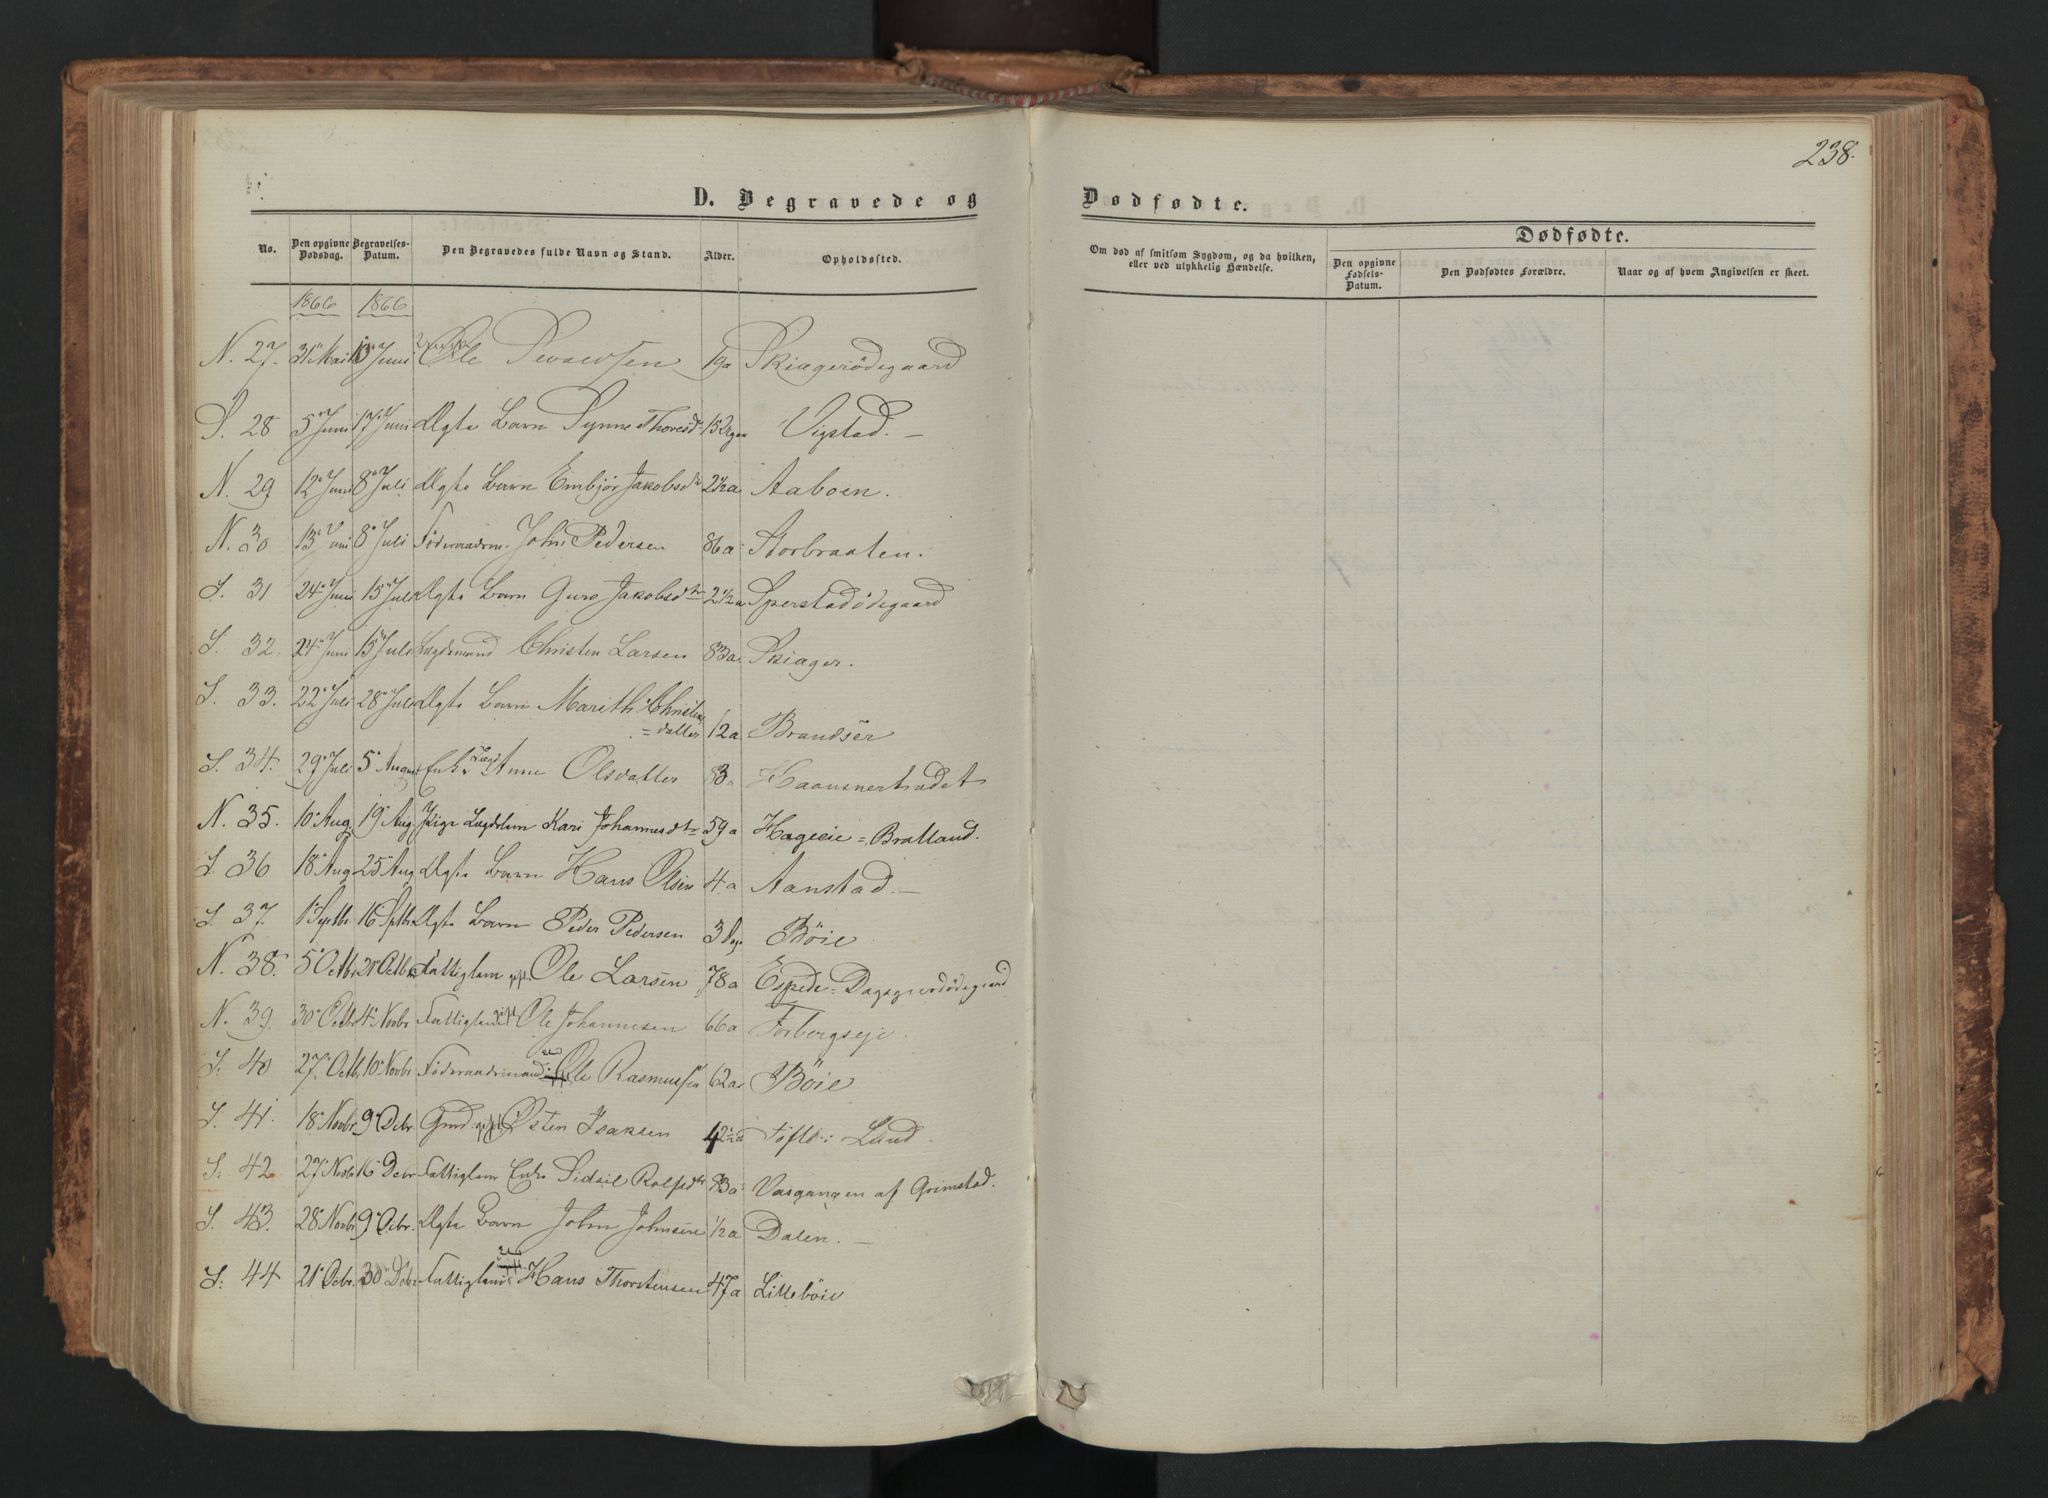 238.
D. Begravede og Dødfødte.
No. Den opgivne Dødsdag. Begravelses-Datum. Den Begravedes fulde Navn og Stand. Alder. Opholdssted.
Om død af smitsom Sygdom, og da hvilken, eller ved ulykkelig Hændelse. Dødfødte. Den opgivne Fødsels-Datum. Den Dødfødtes Forældre. Naar og af hvem Angivelsen er skeet.
1866 1866
N. 27. 31 Mai Juni Ole 19a Skiagerødegaard
S. 28 5 Juni 17 Juni Ægte Barn Synne Thoresdr 15 Vigstad. —
N. 29 12 Juni 8 Juli Ægte Barn Embjør Jakobsdr 2½a Aaboen.
N. 30 13 Juni 8 Juli Føderaadsm. John Pedersen 86a Storbraaten.
S. 31 24 Juni 15 Juli Ægte Barn Guro Jakobsdtr 2½a Sperstadødegaard
S. 32. 24 Juni 15 Juli Lægdemand Christen Larsen 83a Skiager.
S. 33. 22 Juli 28 Juli Ægte Barn Marith Christens
= datter 12a Brandsør
S. 34. 29 Juli 5 August Enke Lægd Anne Olsdatter 83a
N. 35. 10 Aug 19 Aug. Pige Lægdslem Kari Johannesdtr 59a Hageeie = Bratland.
S. 36 18 Aug 25 Aug Ægte Barn Hans Olsen 4a Aanstad. —
S. 37. 1 Septbr 16 Sptbr Ægte Barn Peder Pedersen 3 Dage Böie
N. 38. 5 Octbr 21 Octbr Fattiglem gift Ole Larsen 78a Espede = Dagsgardødegaard
N. 39. 30 Octbr 4 Novbr Fattiglem gift Ole Johannesen 66a Forbergseje.
S. 40 27 Octb. 10 Novbr Føderaadsmand Ole Rasmussen 62a Böie
S. 41. 18 Novbr 9 Debr Gmd. gift Østen Isaksen 42½a Tofte i Lund.
S. 42 27 Novbr 16 Debr Fattiglem Enke Sidsil Rolfsdtr 83a Vasgangen af Grimstad.
S. 43. 28 Novbr 9 Debr. Ægte Barn John Johnsen ½a Dalen. —
S. 44 21 Debr. 30 Debr Fattiglem Hans Thorstensen 47a Lilleböie